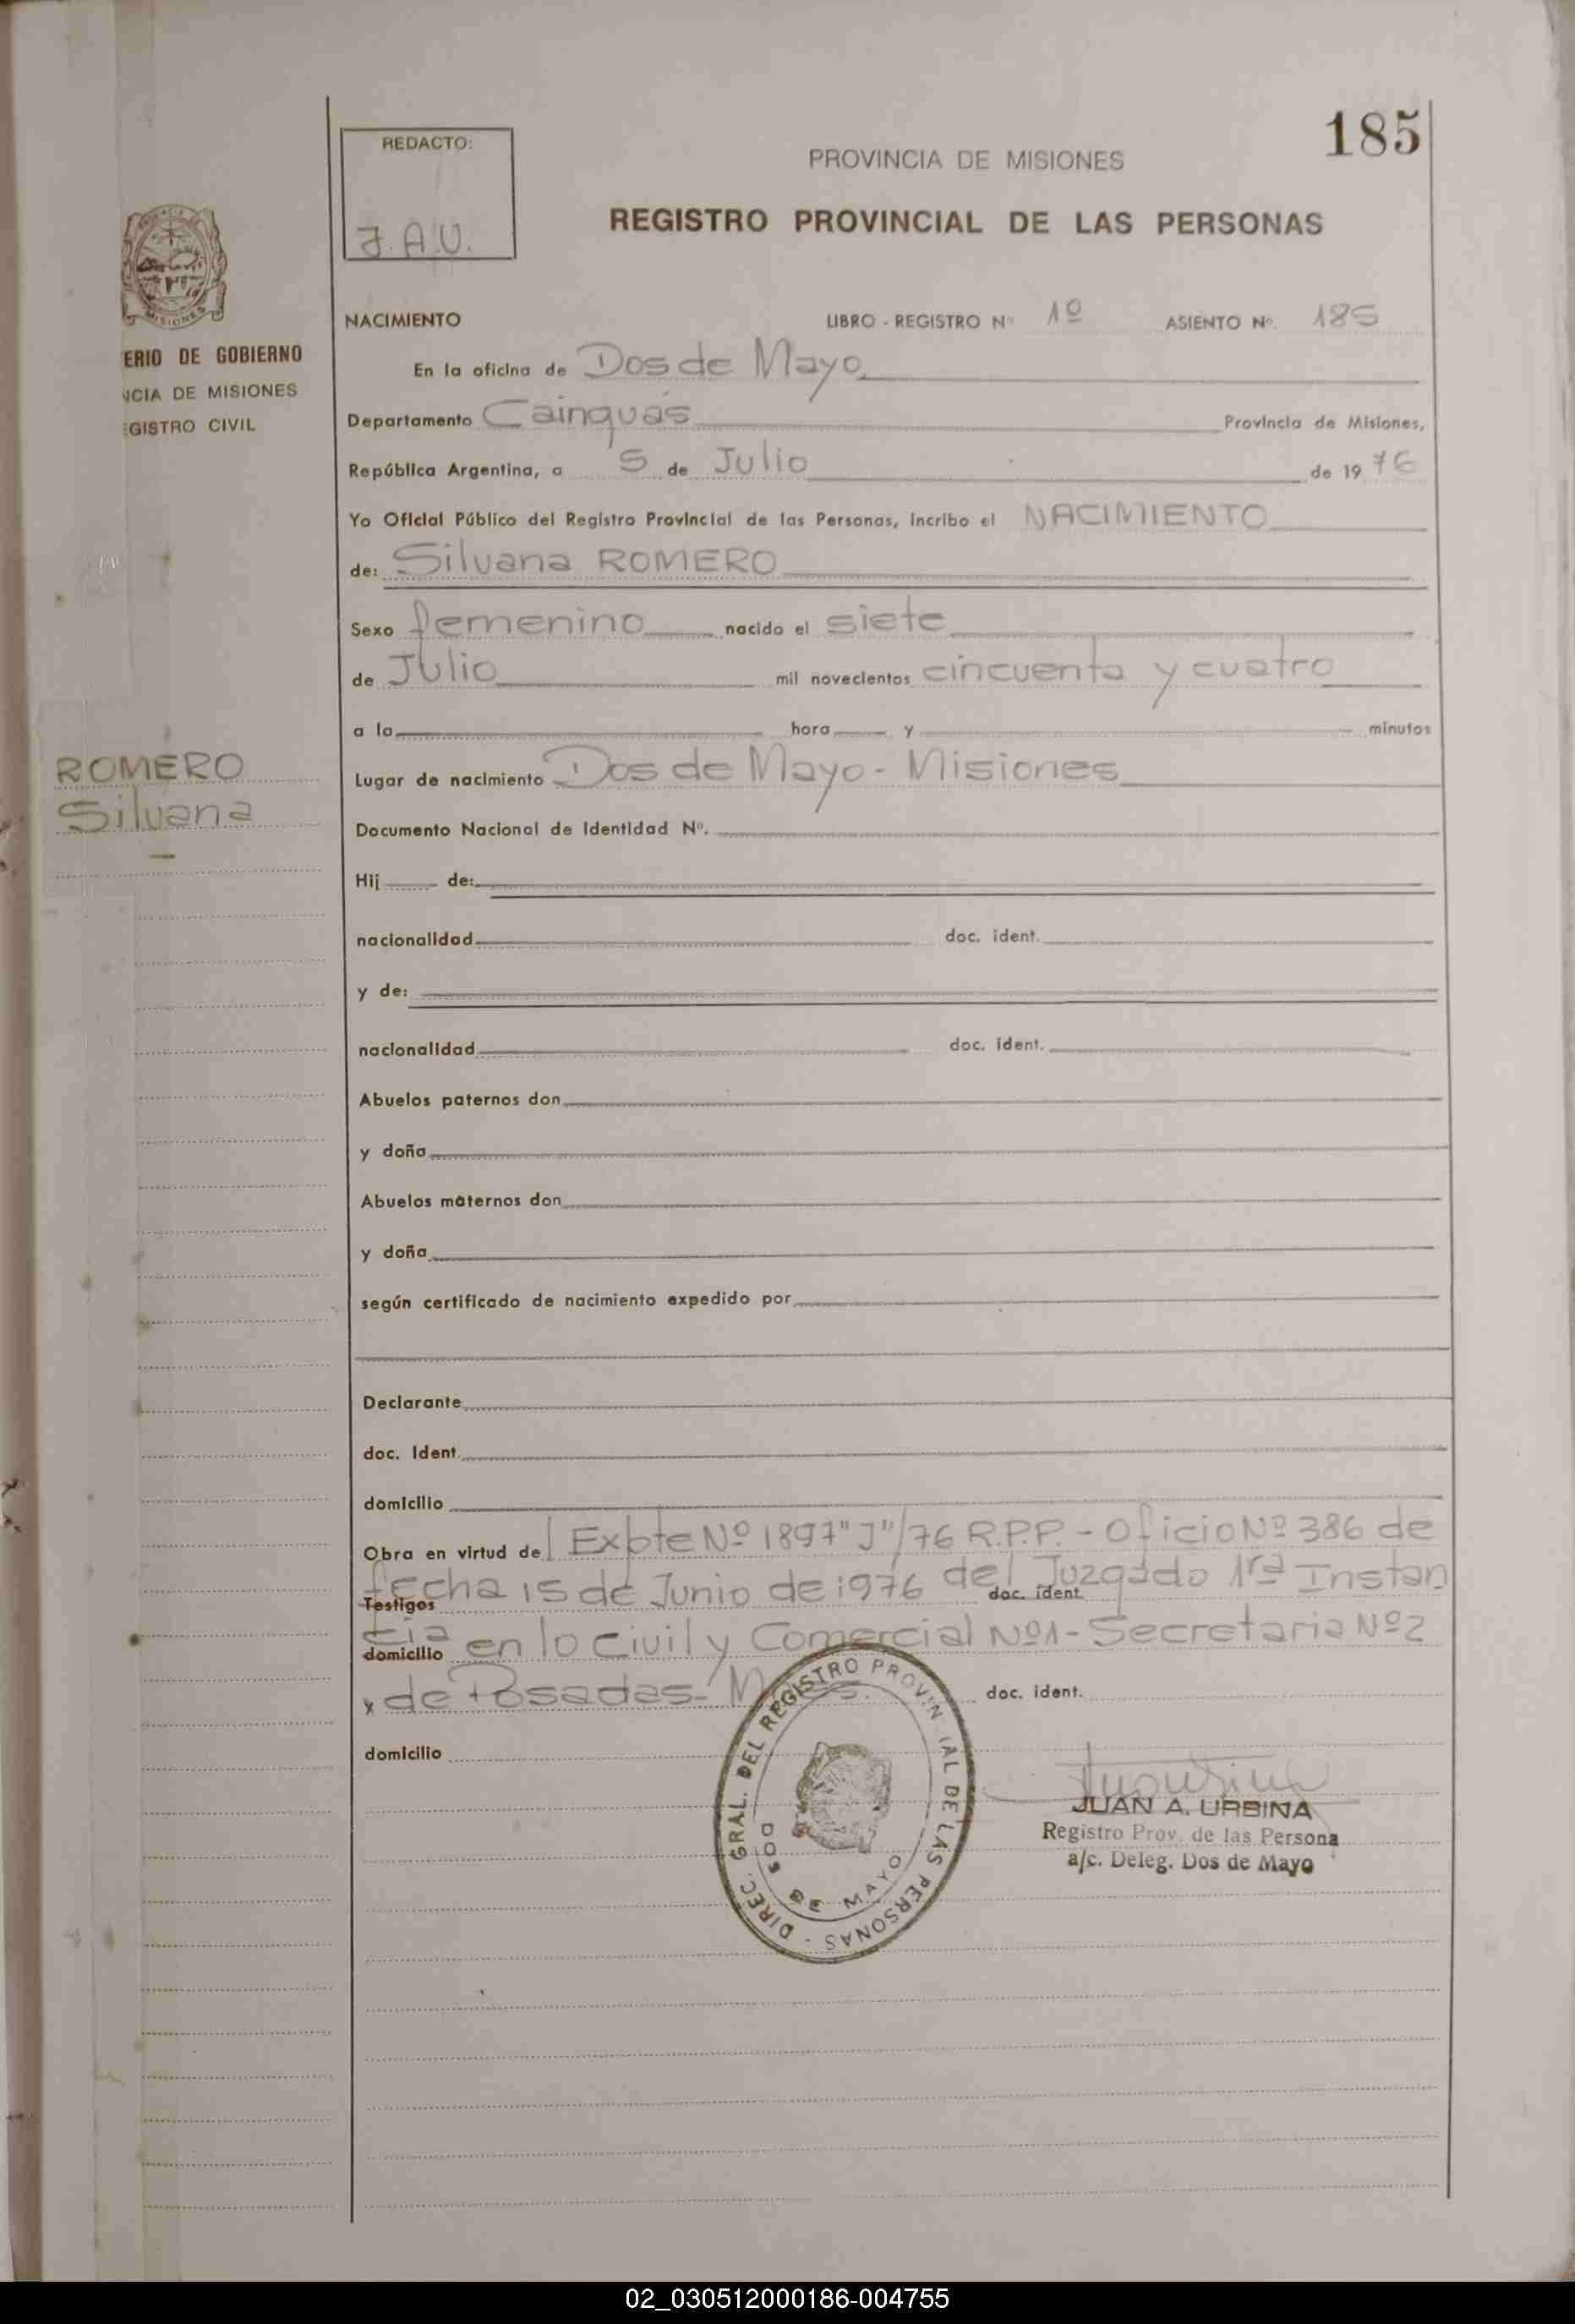 185
REDACTO:
J.A.U.
PROVINCIA DE MISIONES
REGISTRO PROVINCIAL DE LAS PERSONAS
MISIONES
ERIO DE GOBIERNO
NCIA DE MISIONES
GISTRO CIVIL
NACIMIENTO LIBRO - REGISTRO Nº 1º ASIENTO Nº. 185
En la oficina de Dos de Mayo
Departamento Cainguás Provincia de Misiones,
República Argentina, a 5 de Julio de 1976
Yo Oficial Público del Registro Provincial de las Personas, incribo el NACIMIENTO
de: Silvana ROMERO
Sexo femenino nacido el siete
de Julio mil novecientos cincuenta y cuatro
a la hora y minutos
ROMERO
Silvana
Lugar de nacimiento Dos de Mayo - Misiones
Documento Nacional de Identidad Nº.
Hij de:
nacionalidad doc. ident.
y de:
nacionalidad doc. ident.
Abuelos paternos don
y doña
Abuelos maternos don
y doña
según certificado de nacimiento expedido por
Declarante
doc. Ident.
domicilio
Obra en virtud del Expte Nº 1897"J"/76 R.P.P. - Oficio Nº 386 de
fecha 15 de Junio de 1976 del Juzgado 1ra Instan
Testigos doc. ident.
cia en lo Civil y Comercial Nº1 - Secretaria Nº2
domicilio
y de Posadas - doc. ident.
domicilio
DIREC. GRAL. DEL REGISTRO PROVIN IAL DE LAS PERSONAS -
DOS DE MAYO
JUAN A. URBINA
Registro Prov. de las Persona
a/c. Deleg. Dos de Mayo
02_030512000186-004755